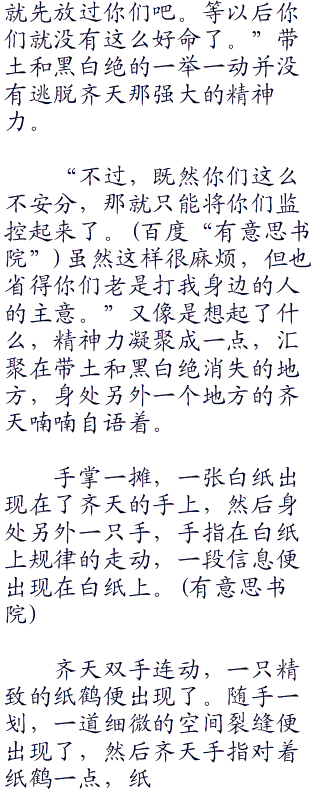 就先放过你们吧。等以后你
们就没有这么好命了。”带
土和黑白绝的一举一动并没
有逃脱齐天那强大的精神
力。
“不过，既然你们这么
不安分，那就只能将你们监
控起来了。(百度“有意思书
院”)虽然这样很麻烦，但也
省得你们老是打我身边的人
的主意。”又像是想起了什
么，精神力凝聚成一点，汇
聚在带土和黑白绝消失的地
方，身处另外一个地方的齐
天喃喃自语着。
手掌一摊，一张白纸出
现在了齐天的手上，然后身
处另外一只手，手指在白纸
上规律的走动，一段信息便
出现在白纸上。(有意思书
院)
齐天双手连动，一只精
致的纸鹤便出现了。随手一
划，一道细微的空间裂缝便
出现了，然后齐天手指对着
纸鹤一点，纸